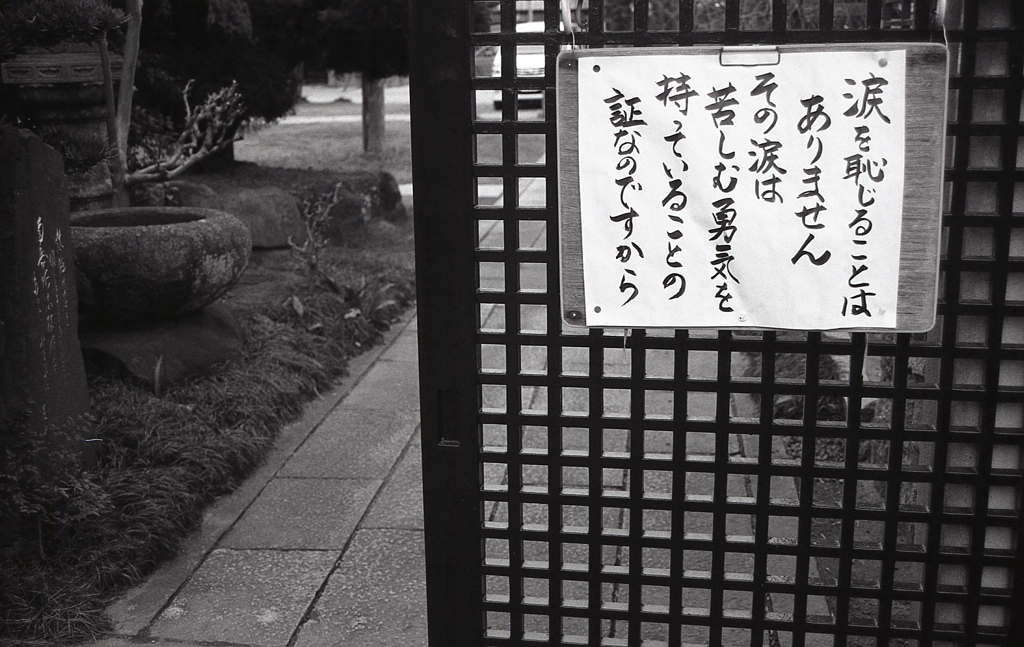 涙を恥じることは
ありません
その涙は
苦しむ勇気を
持っていることの
証なのですから